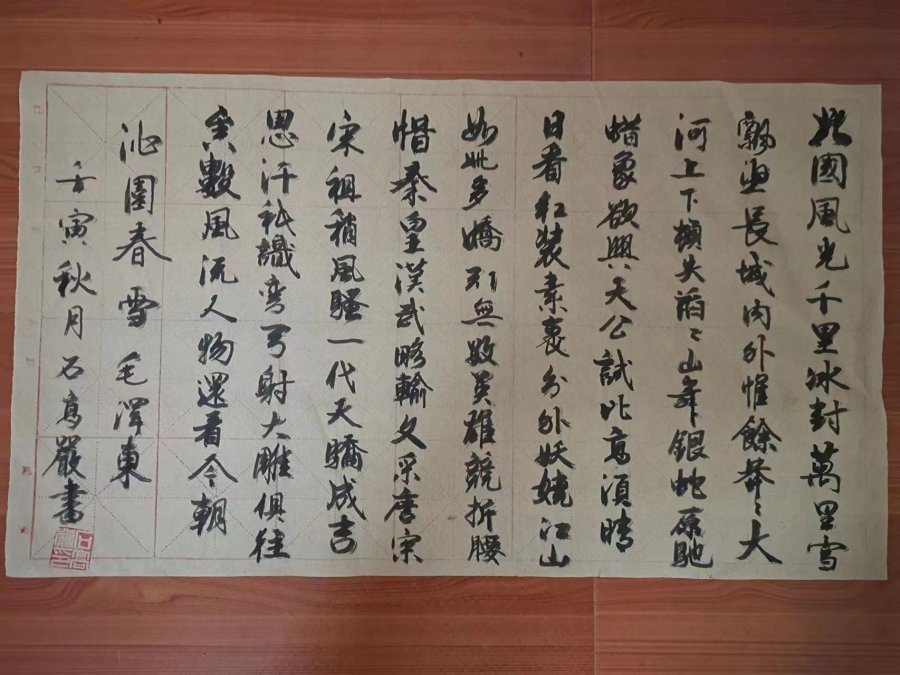 北國風光千里冰封萬里雪
飄望長城內外惟餘莽〻大
河上下頓失滔〻山舞銀蛇原馳
蜡象欲與天公試比高須晴
日看紅裝素裹分外妖嬈江山
如此多嬌引無數英雄競折腰
惜秦皇漢武略輸文采唐宗
宋祖稍風騷一代天驕成吉
思汗祇識彎弓射大雕俱往
矣數風流人物還看今朝
沁園春雪毛澤東
壬寅秋月石高嚴書